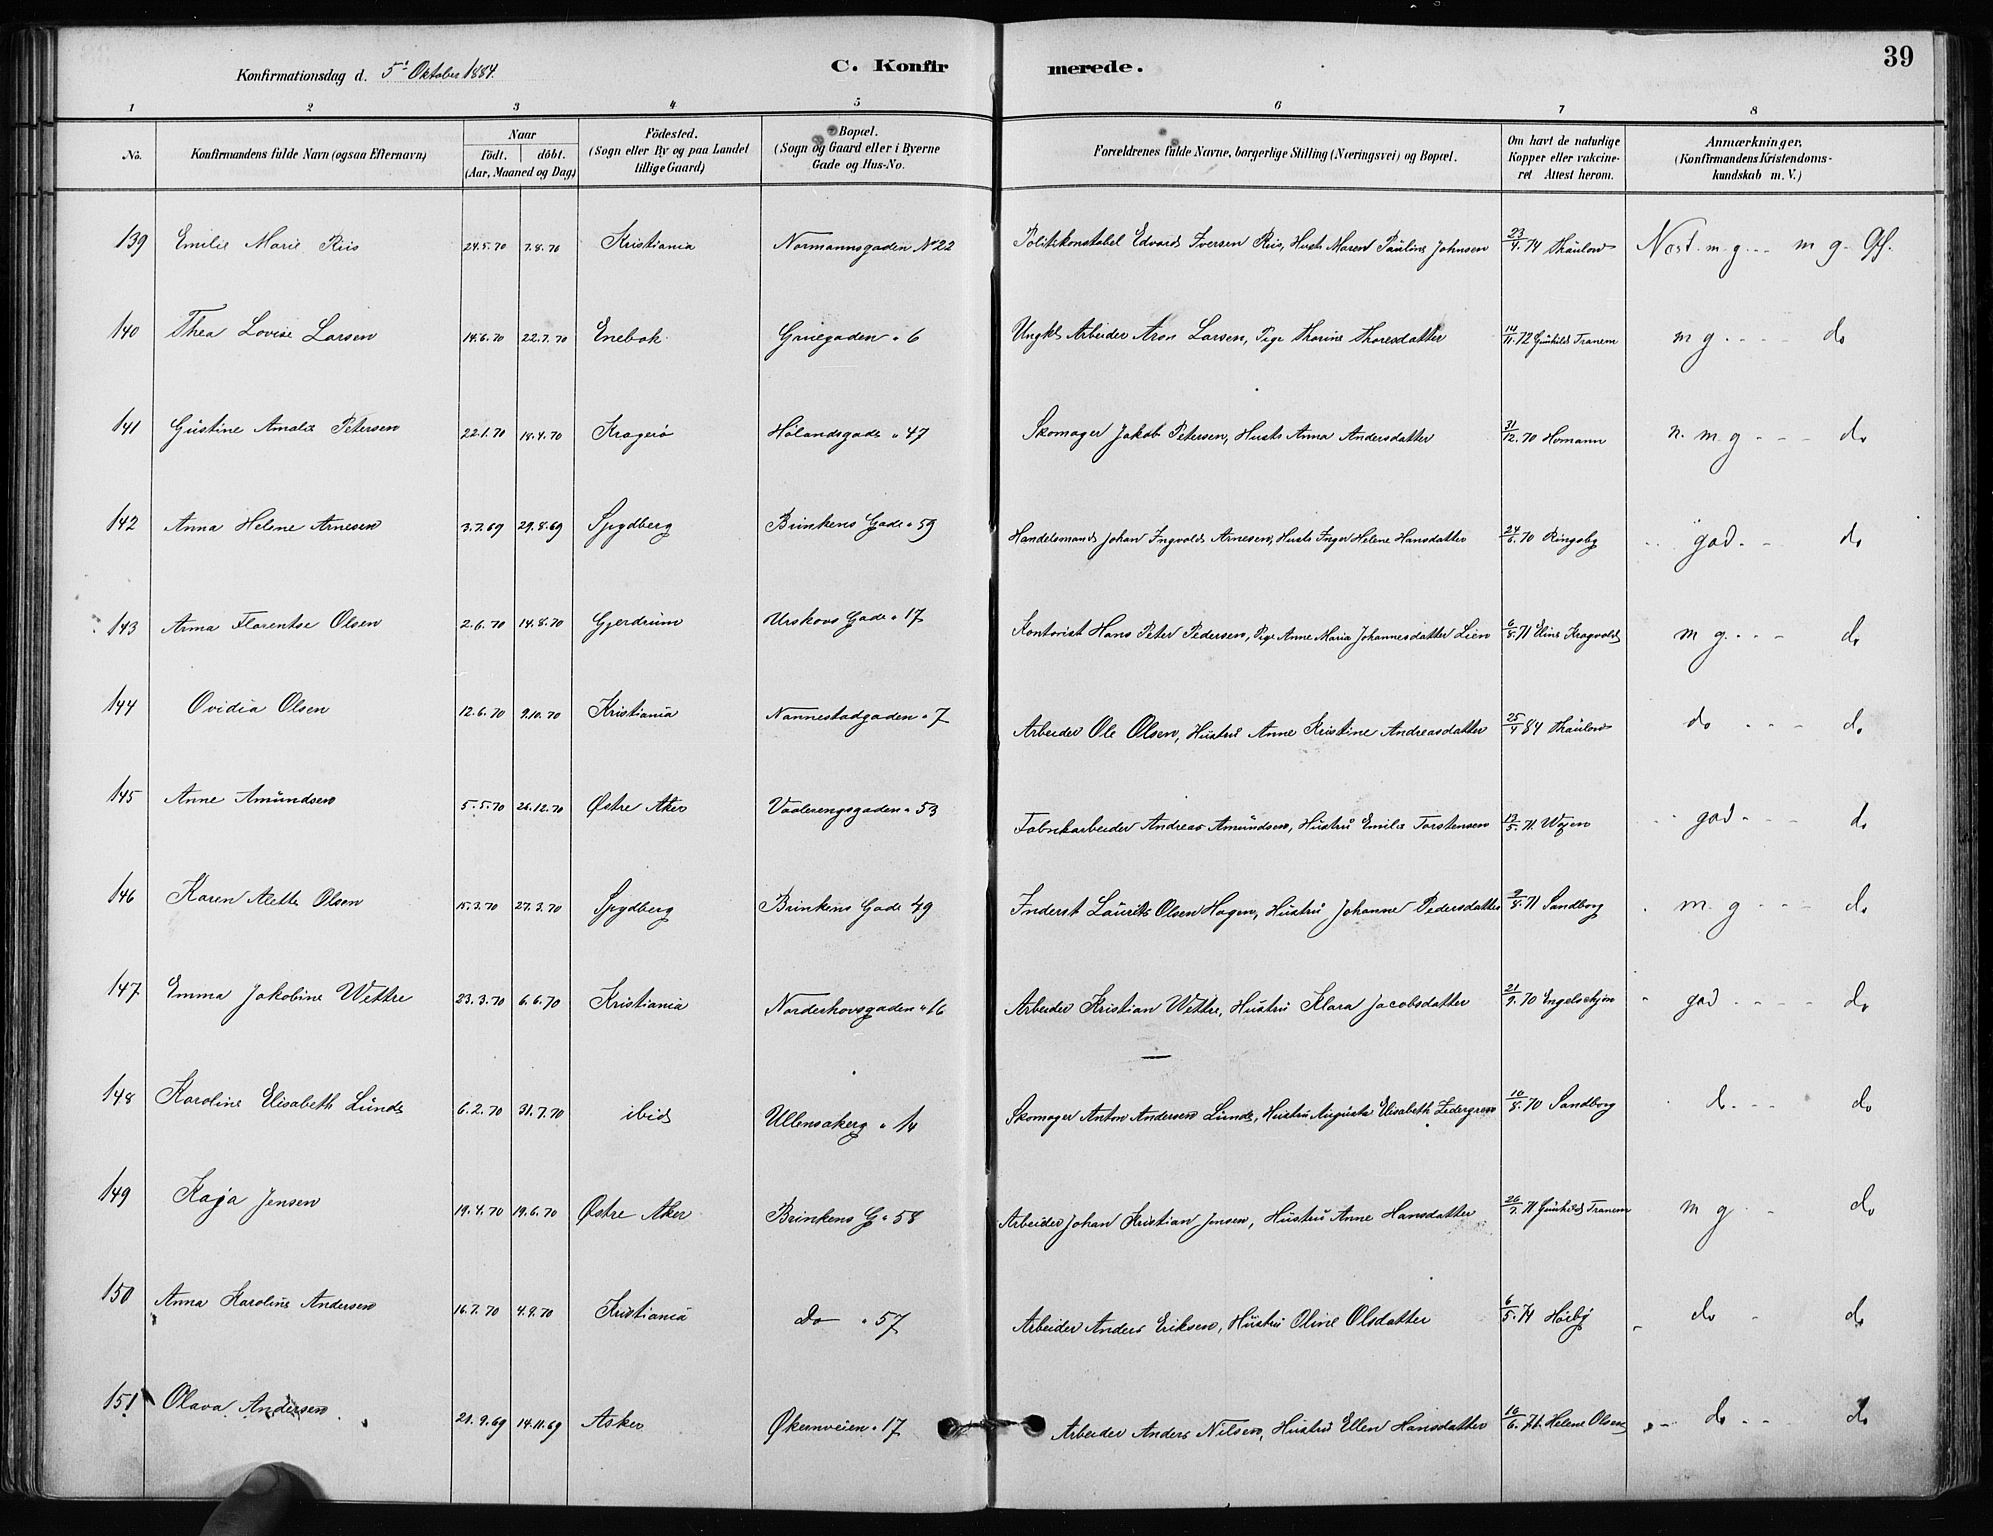 39
Konfirmationsdag d. 5' Oktober 1884. C. Konfirmerede.
1 2 3 4 5 6 7 8
No. Konfirmandens fulde Navn (ogsaa Efternavn) Naar födt. döbt. (Aar, Maaned og Dag) Födested. (Sogn eller By og paa Landet tillige Gaard) Bopæl. (Sogn og Gaard eller i Byerne Gade og Hus-No. Forældrenes fulde Navne, borgerlige Stilling (Næringsvei) og Bopæl. Om havt de naturlige Kopper eller vakcineret Attest herom. Anmærkninger. (Konfirmandens Kristendomskundskab m. V.)
139 Emilie Marie Riis 24.5.70 7.8.70 Kristiania Normannsgaden No 22 Politikonstabel Edvard Iversen Riis, Hust. Maren Pauline Johnsen 23/4.74 Thaulow Næst. m. g. - - m g. Gf.
140 Thea Lovise Larsen 14.6.70 22.7.70 Enebak Grüegaden " 6 Ungkl Arbeider Aron Larsen, Pige Thorine Thoresdatter 14/11.72 Gunhild Tranem m g - - - do
141 Güstine Amalie Petersen 22.1.70 18.4.70 Kragerö Hölandsgade " 47 Skomager Jakob Petersen, Hust. Anna Andersdatter 31/12.70 Homann n. m. g - - - do
142 Anna Helene Arnesen 3.7.69 29.8.69 Spydberg Brinkens Gade " 59 Handelsmand Johan Ingvald Arnesen, Hust. Inger Helene Hansdatter 24/6.70 Ringsby god - - do
143 Anna Florentse Olsen 2.6.70 14.8.70 Gjerdrüm Urskovs Gade " 17 Kontorist Hans Peter Pedersen, Pige Anne Maria Johannesdatter Lien 6/8.71 Eline Kragvold m g. - - - do
144 Ovidia Olsen 12.6.70 9.10.70 Kristiania Nannestadgaden " 7 Arbeider Ole Olsen, Hüstrü Anne Kristine Andreasdatter 25/4 84 Thaulow do - - - do
145 Anne Amündsen 5.5.70 26.12.70 Østre Aker Vaalerengsgaden " 53 Fabrikarbeider Andreas Amündsen, Hüstrü Emilie Torstensen 17/5.71. Wogen god - - - do
146 Karen Alette Olsen 15.3.70 27.3.70 Spydberg Brinkens Gade 49 Inderst Laurits Olsen Hagen, Hüstrü Johanne Pedersdatter 9/8.71 Sandborg m. g - - - do
147 Emma Jakobine Wettre 23.3.70 6.6.70 Kristiania Norderhovsgaden " 16 Arbeider Kristian Wettre, Hüstrü Klara Jacobsdatter 21/9.70 Engelschjøn god - - - - do
148 Karoline Elisabeth Lünde 6.2.70 31.7.70 ibid Ullensakerg " 14 Skomager Anton Andersen Lünde, Hüstrü Augusta Elisabeth Zedergren 10/8.70 Sandborg do - - - do
149 Kaja Jensen 19.4.70 19.6.70 Østre Aker Brinkens G " 58 Arbeider Johan Kristian Jensen, Hüstrü Anne Hansdatter 26/7.71 Gunhild Tranem m g - do
150 Anna Karoline Andersen 16.7.70 4.9.70 Kristiania Do " 57 Arbeider Anders Eriksen, Hüstrü Oline Olsdatter 6/5.74 Höiby do - do
151 Olava Andersen 21.9.69 14.11.69 Asker Økernveien " 17 Arbeider Anders Nilsen, Hüstrü Ellen Hansdatter 10/6.71. Helene Olsen do - - do